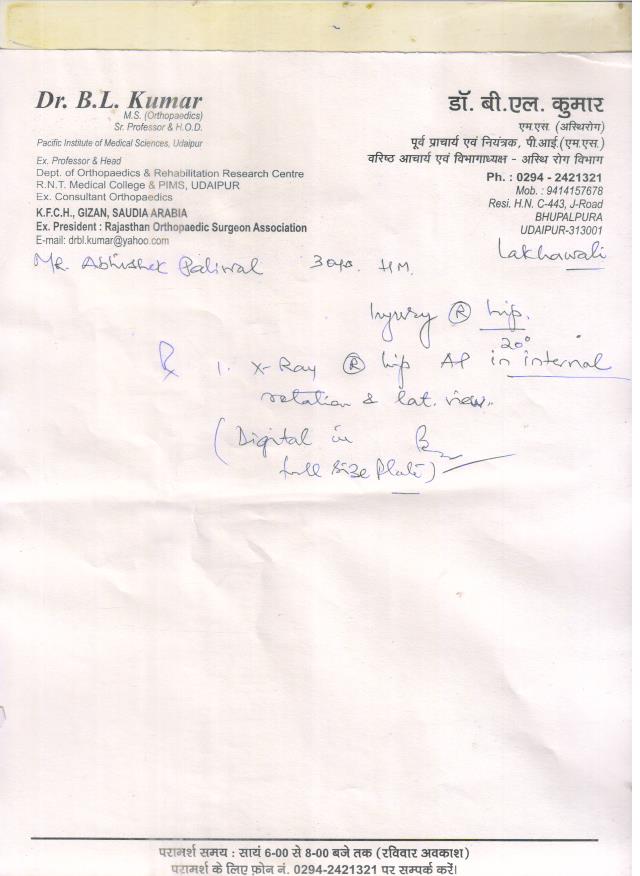 Dr. B.L. Kumar
M.S. (Orthopaedics)
Sr. Professor & H.O.D.
Pacific Institute of Medical Sciences, Udaipur
Ex. Professor & Head
Dept. of Orthopaedics & Rehabilitation Research Centre
R.N.T. Medical College & PIMS, UDAIPUR
Ex. Consultant Orthopaedics
K.F.C.H., GIZAN, SAUDIA ARABIA
Ex. President : Rajasthan Orthopaedic Surgeon Association
E-mail: drbl.kumar@yahoo.com
डॉ. बी.एल. कुमार
एम.एस. (अस्थिरोग)
पूर्व प्राचार्य एवं नियंत्रक, पी.आई.(एम.एस.)
वरिष्ठ आचार्य एवं विभागाध्यक्ष - अस्थि रोग विभाग
Ph. : 0294 - 2421321
Mob. : 9414157678
Resi. H.N. C-443, J-Road
BHUPALPURA
UDAIPUR-313001
Lakhawali
Mr. Abhishek Paliwal 30 HM.
Injury Ⓡ hip.
20°
℞ 1. X-Ray Ⓡ hip AP in internal
rotation & lat. view.
(Digital in
full size Plate)
परामर्श समय : सायं 6-00 से 8-00 बजे तक (रविवार अवकाश)
परामर्श के लिए फ़ोन नं. 0294-2421321 पर सम्पर्क करें।